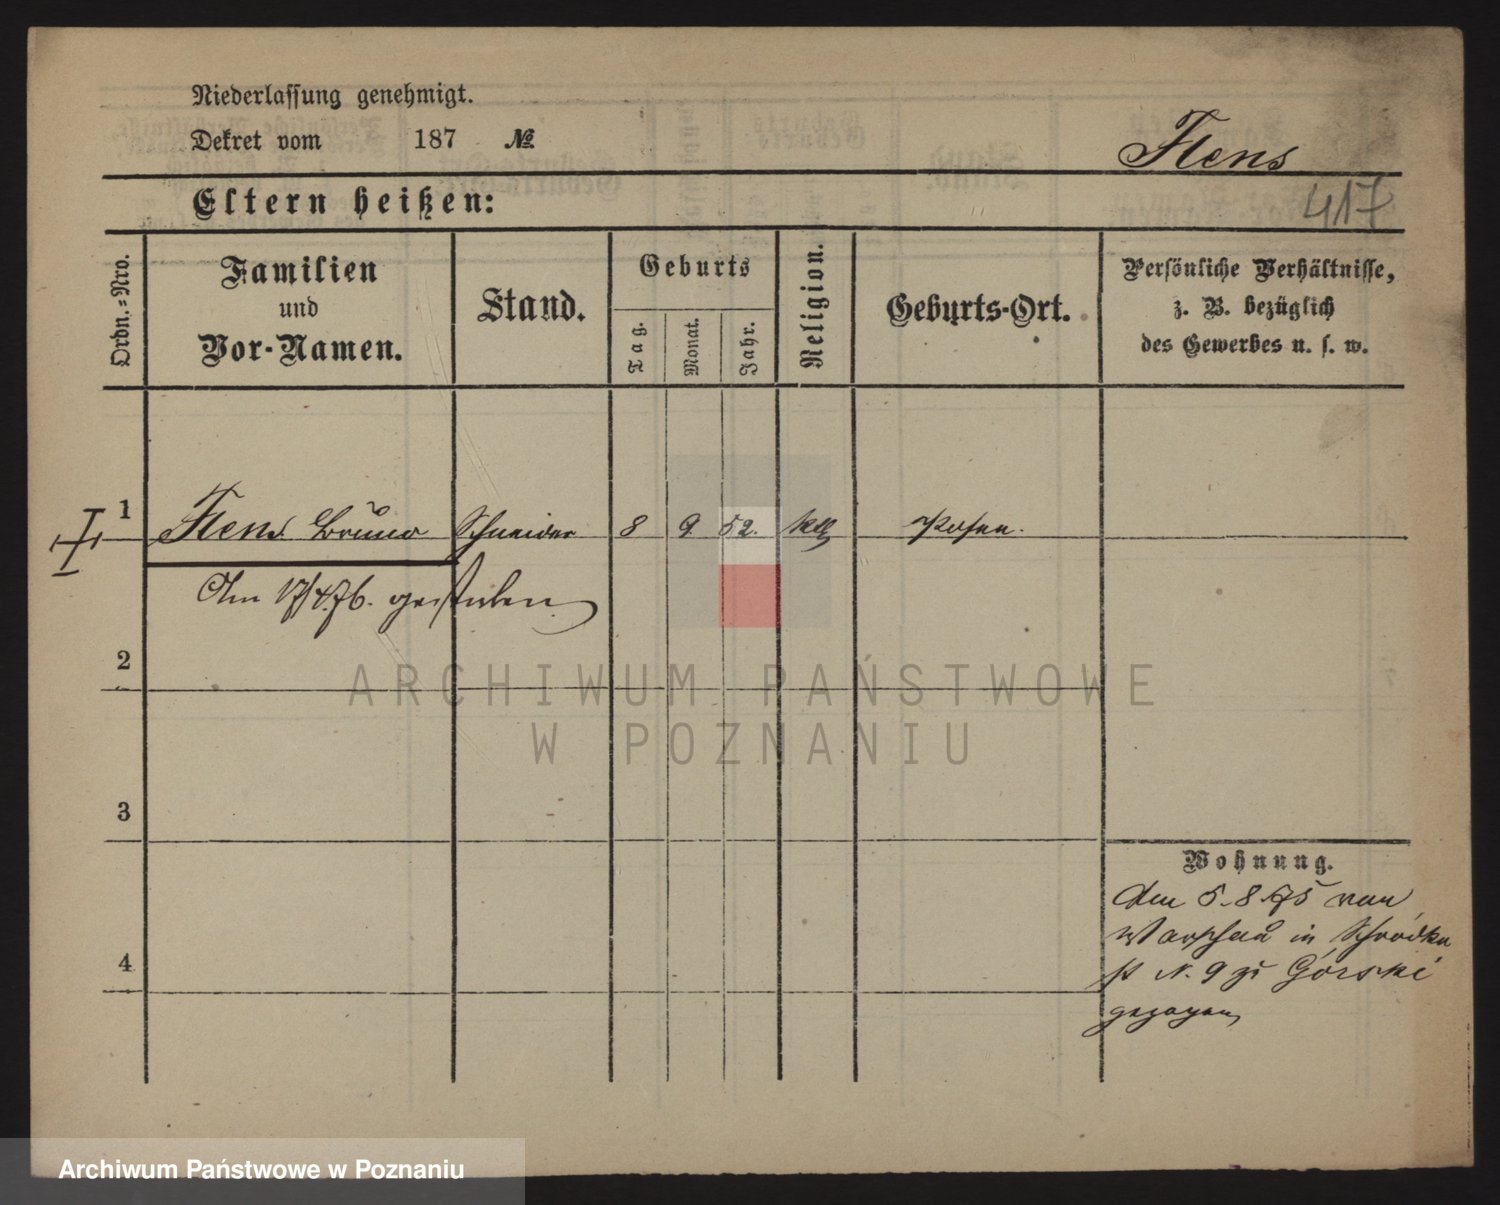 Niederlassung genehmigt.
Dekret vom 187 №
Flens
417
Eltern heißen:
Ordn.-Nro.
Familien
und
Vor-Namen.
Stand.
Geburts
Tag.
Monat.
Jahr.
Religion.
Geburts-Ort.
Persönliche Verhältnisse,
z. B. bezüglich
des Gewerbes u. s. w.
1 Flens Bruno Schneider 8 9 52. kth Posen.
Am 17/4.76. gestorben
2
3
4
Wohnung.
Am 5.8.75 von
Warschau in Schrodka
N. 9 zu Górski
gezogen
ARCHIWUM PAŃSTWOWE
W POZNANIU
Archiwum Państwowe w Poznaniu